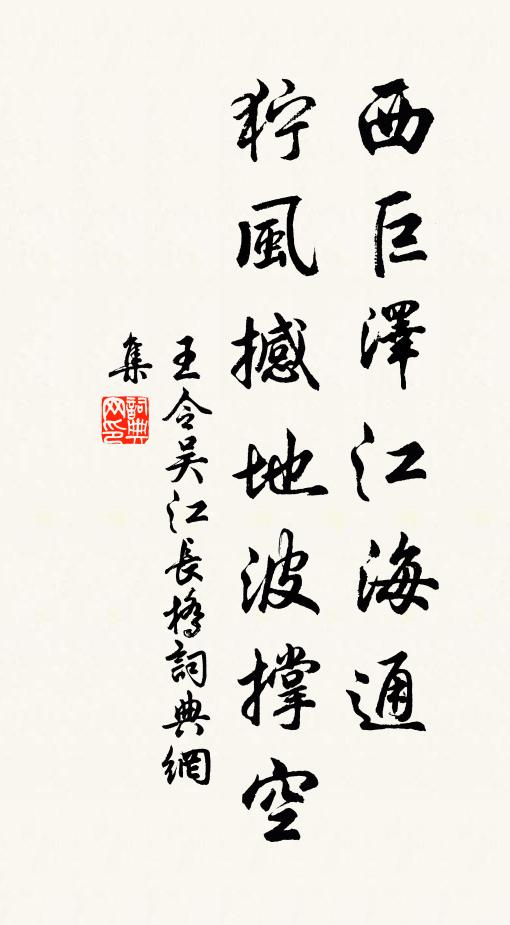 西巨澤江海通
狞風撼地波撐空
王令吴江長橋詞典網
集
詞典
网印